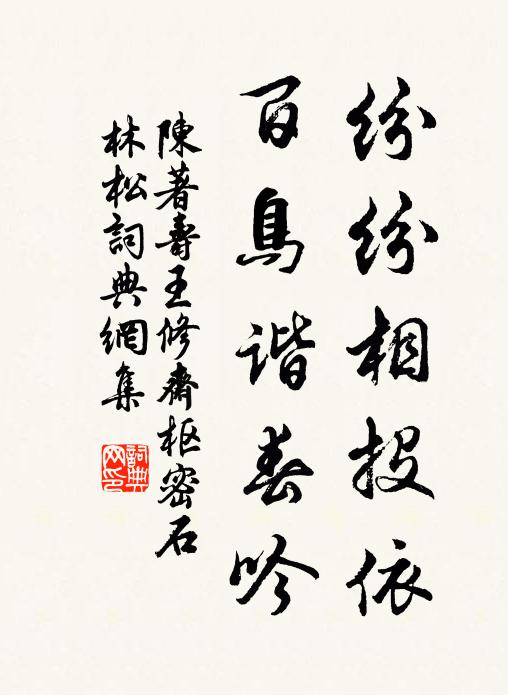 纷纷相投依
百鳥谐春吟
陳著壽王修齋枢密石
林松詞典網集
詞典网印